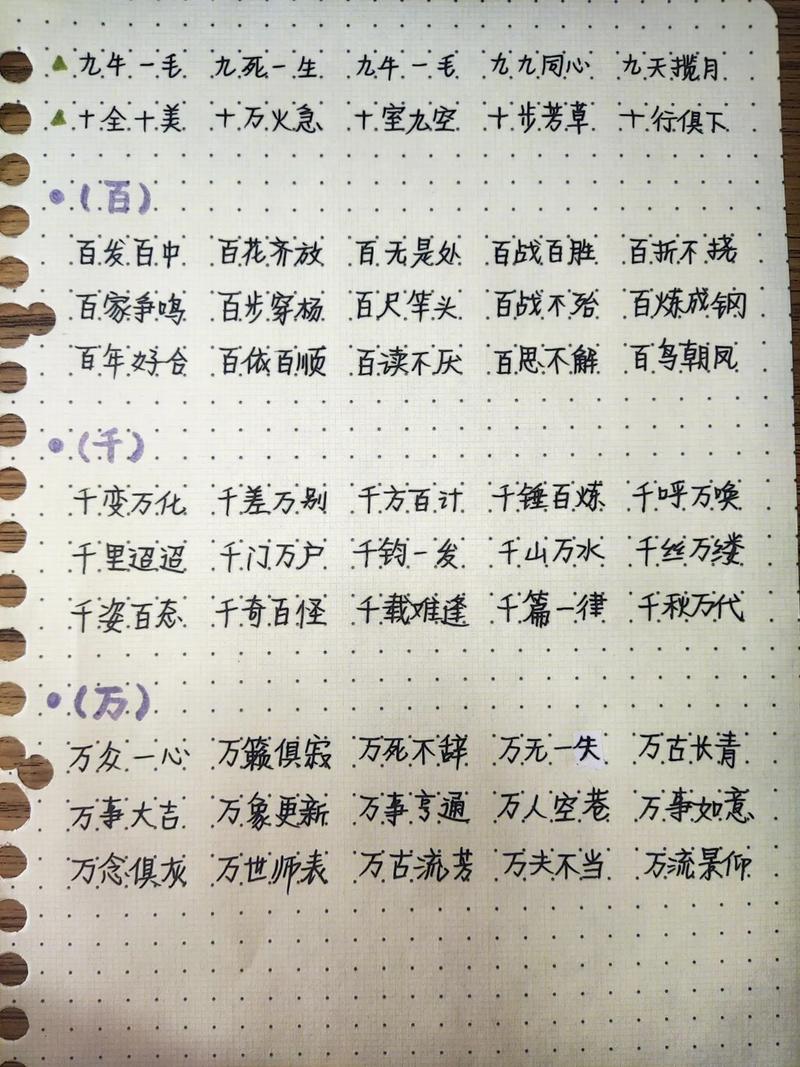 ▲九牛一毛 九死一生 九牛一毛 九九同心 九天揽月
▲十全十美 十万火急 十室九空 十步芳草 十行俱下
•(百)
百发百中 百花齐放 百无是处 百战百胜 百折不挠
百家争鸣 百步穿杨 百尺竿头 百战不殆 百炼成钢
百年好合 百依百顺 百读不厌 百思不解 百鸟朝凤
•(千)
千变万化 千差万别 千方百计 千锤百炼 千呼万唤
千里迢迢 千门万户 千钧一发 千山万水 千丝万缕
千姿百态 千奇百怪 千载难逢 千篇一律 千秋万代
•(万)
万众一心 万籁俱寂 万死不辞 万无一失 万古长青
万事大吉 万象更新 万事亨通 万人空巷 万事如意
万念俱灰 万世师表 万古流芳 万夫不当 万流景仰